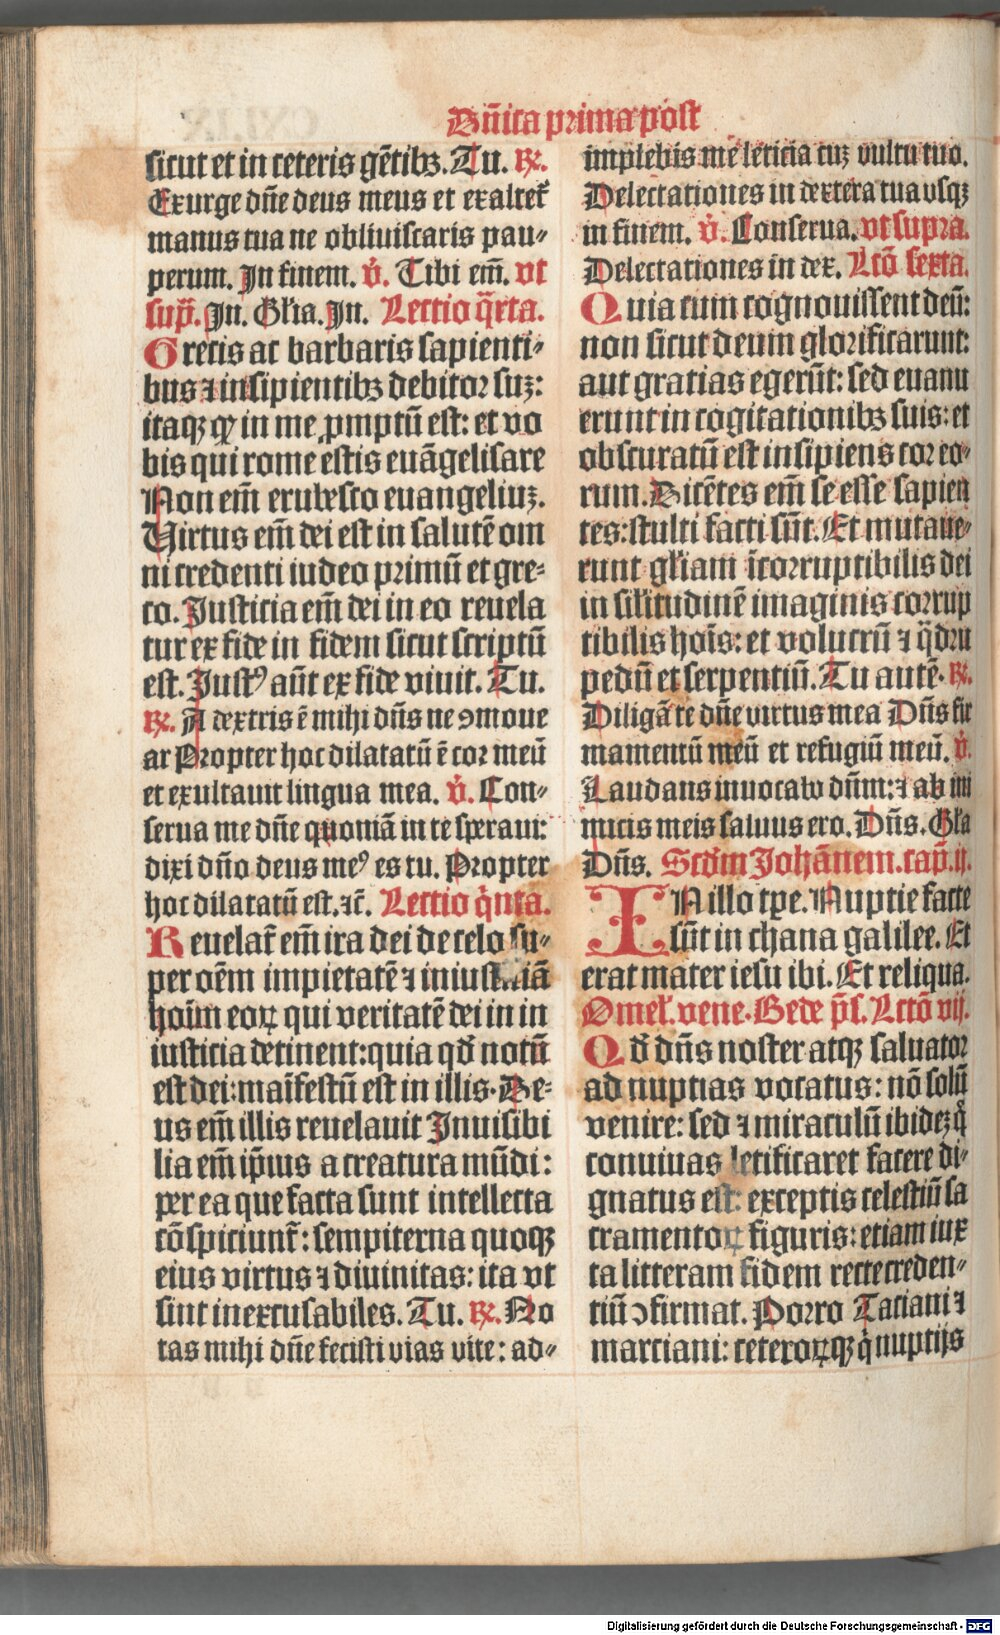 Dn̄ica prima post
sicut et in ceteris gētibꝫ. Tu. ℞.
Exurge dn̄e deus meus et exaltet᷑
manus tua ne obliuiscaris pau⸗
perum. In finem. v̇. Tibi em̄. vt
sup̄. In. Gl̄ia. In. Lectio q̄rta.
Grecis ac barbaris sapienti⸗
bus ⁊ insipientibꝫ debitor suꝫ:
itaqꝫ qḋ in me ꝓmptū est: et vo
bis qui rome estis euāgelisare
Non em̄ erubesco euangeliuꝫ.
Virtus em̄ dei est in salutē om
ni credenti iudeo primū et gre⸗
co. Iusticia em̄ dei in eo reuela
tur ex fide in fidem sicut scriptū
est. Iustꝰ aūt ex fide viuit. Tu.
℞. A dextris ē mihi dn̄s ne ꝯmoue
ar Propter hoc dilatatū ē cor meū
et exultauit lingua mea. v̇. Con⸗
serua me dn̄e quoniā in te speraui:
dixi dn̄o deus meꝰ es tu. Propter
hoc dilatatū est. ⁊c̄. Lectio q̇nta.
Reuelat᷑ em̄ ira dei de celo su⸗
per oēm impietatē ⁊ iniusticiā
hoīm eoꝝ qui veritatē dei in in
iusticia detinent: quia qḋ notū
est dei: maīfestū est in illis. De⸗
us em̄ illis reuelauit Inuisibi
lia em̄ ip̄ius a creatura mūdi:
per ea que facta sunt intellecta
cōspiciunt᷑: sempiterna quoqꝫ
eius virtus ⁊ diuinitas: ita vt
sint inexcusabiles. Tu. ℞. No
tas mihi dn̄e fecisti vias vite: ad⸗
implebis me leticia cuꝫ vultu tuo.
Delectationes in dextera tua vsqꝫ
in finem. v̇. Conserua. vt supra.
Delectationes in dex. Lcō sexta.
Quia cum cognouissent deū:
non sicut deum glorificarunt:
aut gratias egerūt: sed euanu
erunt in cogitationibꝫ suis: et
obscuratū est insipiens cor eo⸗
rum. Dicētes em̄ se esse sapien
tes: stulti facti sūt. Et mutaue⸗
runt gl̄iam īcorruptibilis dei
in sil̄itudinē imaginis corrup
tibilis hoīs: et volucrū ⁊ q̄dru
pedū et serpentiū. Tu autē. ℞.
Diligā te dn̄e virtus mea Dn̄s fir
mamentū meū et refugiū meū. v̇.
Laudans inuocabo dn̄m: ⁊ ab ini
micis meis saluus ero. Dn̄s. Gl̄a
Dn̄s. Scd̄m Johānem. cap̄. ij.
IN illo tp̄e. Nuptie facte
sūt in chana galilee. Et
erat mater iesu ibi. Et reliqua.
Omel̄. vene. Bede p̄s. Lctō vij.
Qḋ dn̄s noster atqꝫ saluator
ad nuptias vocatus: nō solū
venire: sed ⁊ miraculū ibideꝫ q̇
conuiuas letificaret facere di⸗
gnatus est: exceptis celestiū sa
cramentoꝝ figuris: etiam iux
ta litteram fidem recte creden⸗
tiū ꝯfirmat. Porro Taciani ⁊
marciani: ceteroꝝqꝫ q̇ nuptijs
Digitalisierung gefördert durch die Deutsche Forschungsgemeinschaft - DFG